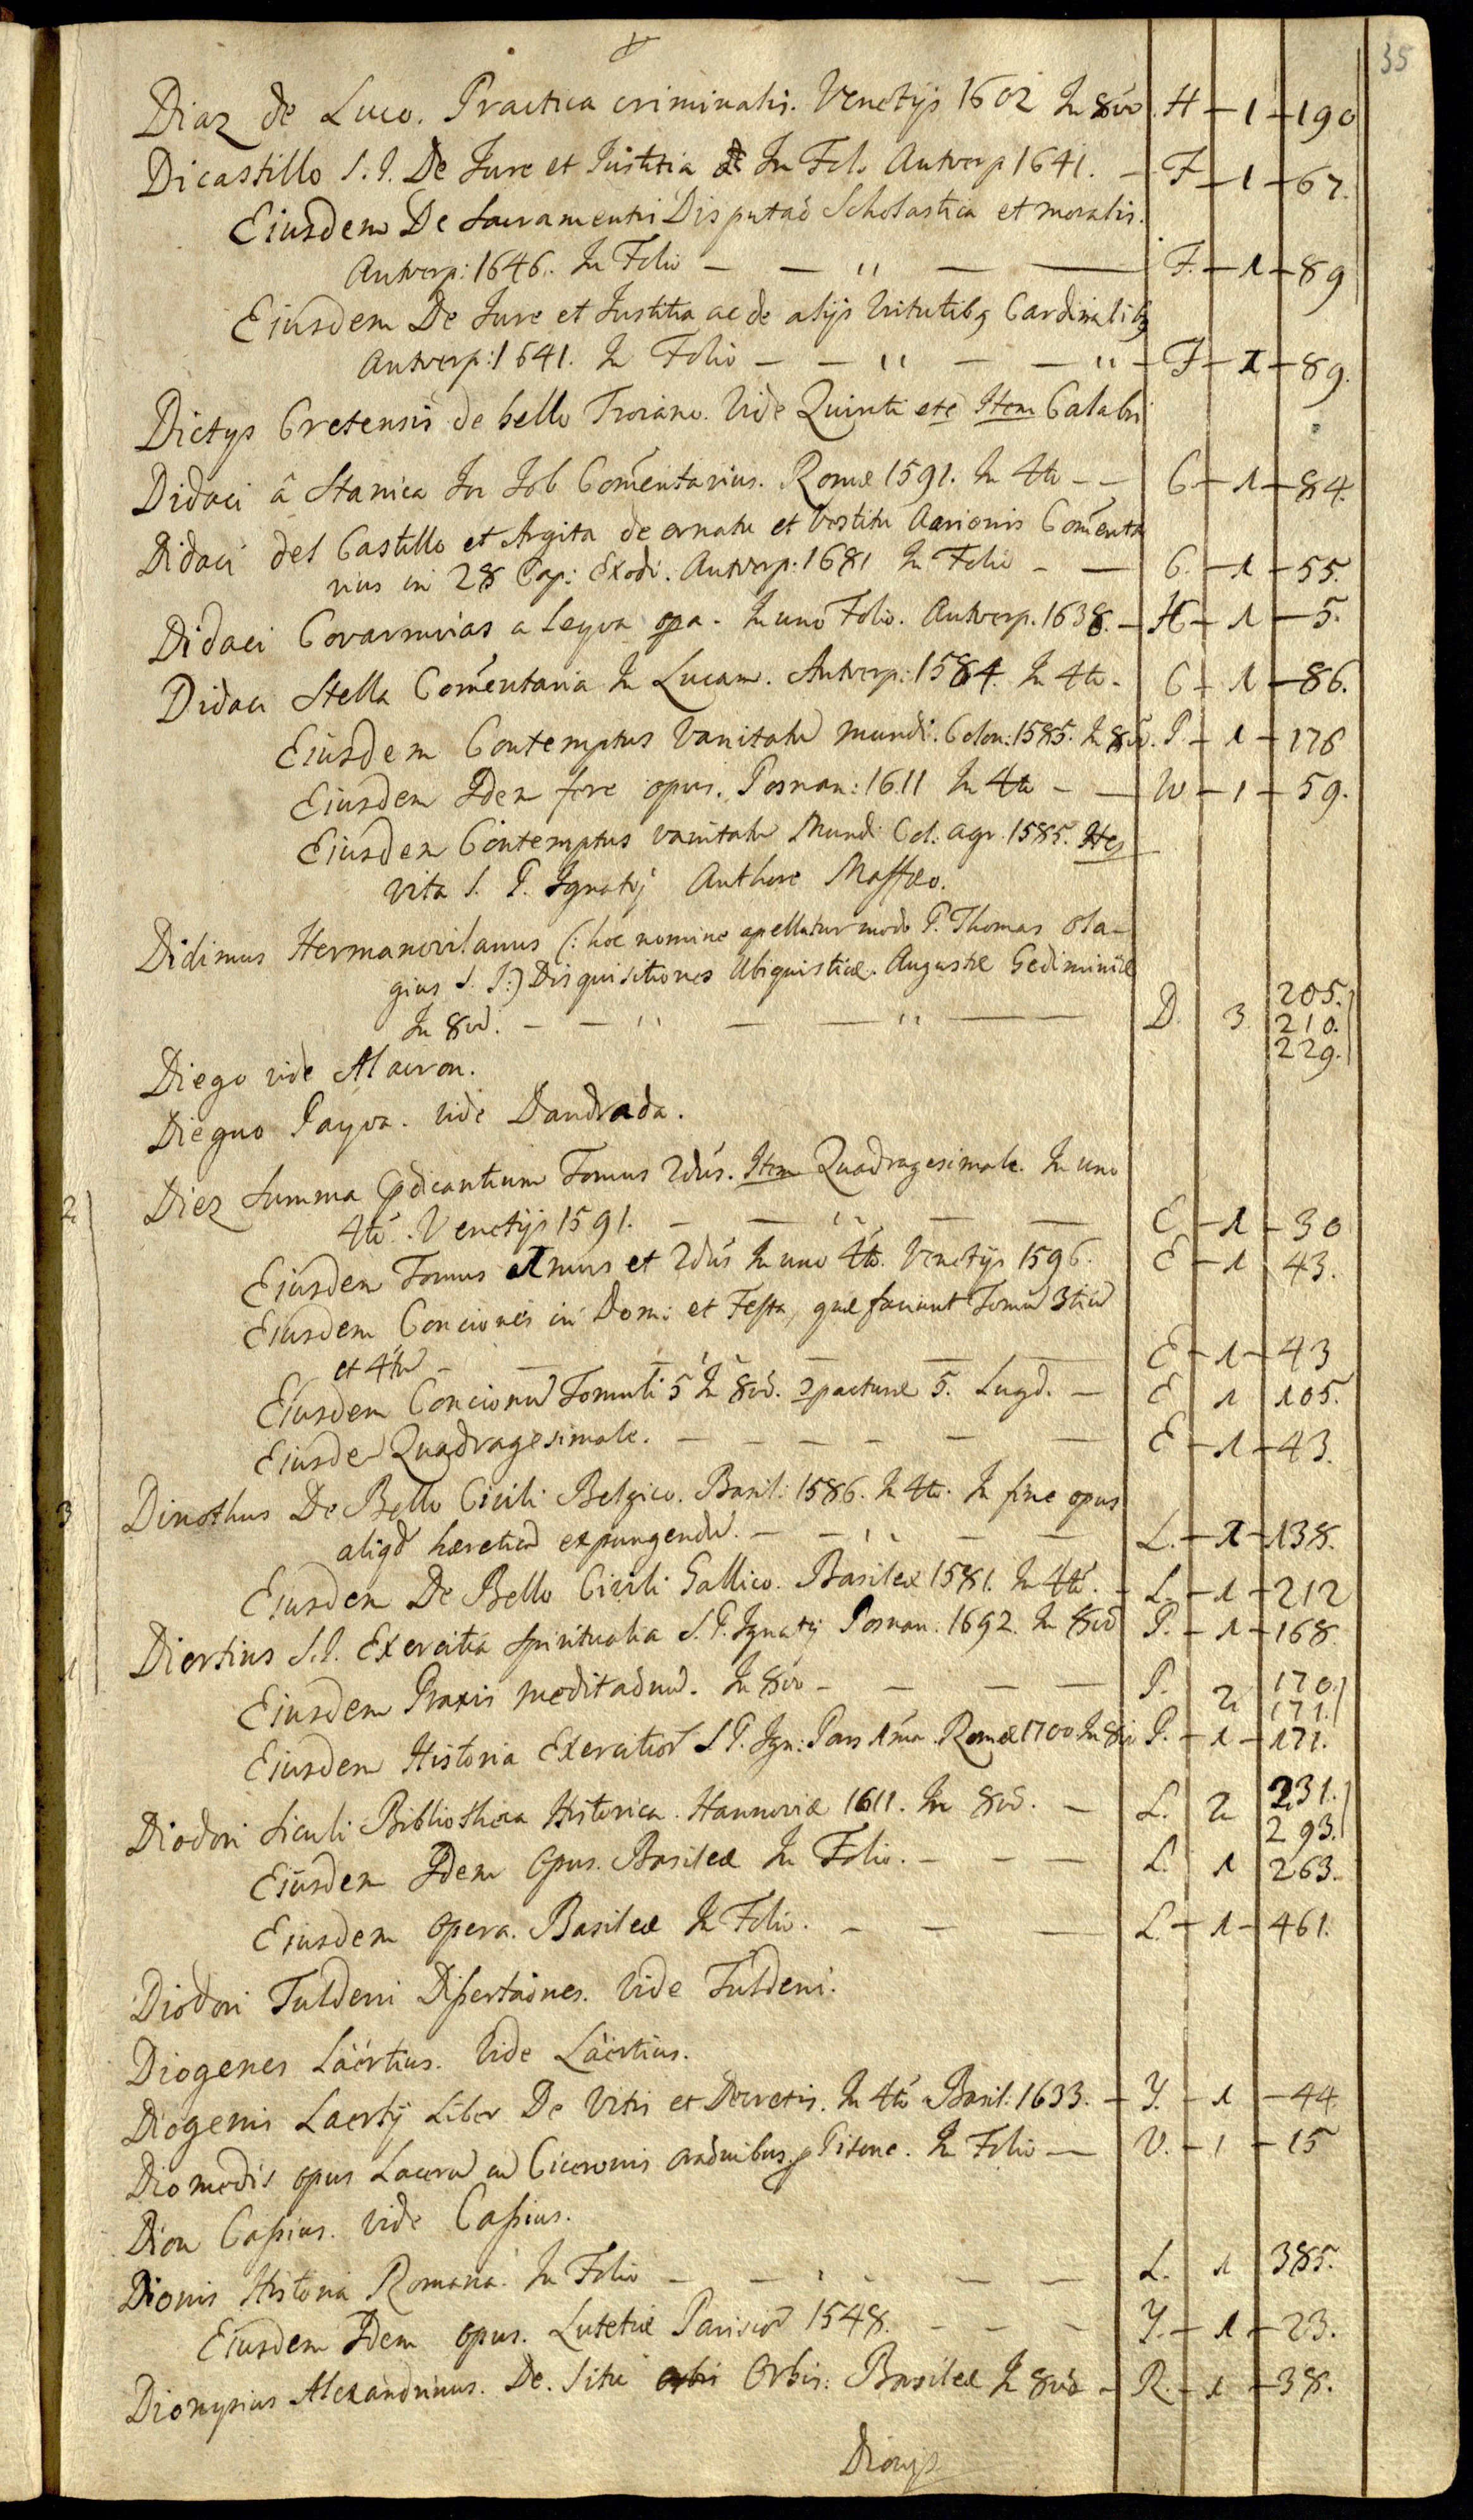 35
Diaz de Luco. Practica criminalis. Venetijs 1602 In 8vo. H - 1 - 190
Dicastillo S. J. De Jure et Justitia In Folo Antverp 1641. - F - 1 - 67.
Eiusdem De Sacramentis Disputaõ Scholastica et moralis.
Antverp: 1646. In Folio - - " - - F. - 1 - 89
Eiusdem De Jure et Justitia ac de alijs Virtutibq Cardinalibq
Antverp: 1641. In Folio - - " - - " - F - 1 - 89.
Dictys Cretensis de bello Troiano. Vide Quinti etc Item Calabri
Didaci â Stanica In Job Comentarius. Romæ 1591. In 4to - - C - 1 - 84.
Didaci del Castillo et Argita de ornatu et Vestitu Aarionis Comenta
rius in 28 Cap: Exodi. Antverp: 1681 In Folio - - C. - 1 - 55.
Didaci Covarruvias a Leyva opa. In uno Folio. Antverp. 1638. - H - 1 - 5.
Didaci Stella Comentaria In Lucam. Antverp: 1584. In 4to - C - 1 - 86.
Eiusdem Contemptus Vanitatu mundi. Colon: 1585. In 8vo. P. - 1 - 176
Eiusdem Idem fere opus. Posnan: 1611 In 4to - - W - 1 - 59.
Eiusdem Contemptus vanitatu Mundi Col: agr. 1585. Ite
vita S. P. Ignatij Authore Maffæo.
Didimus Hermanovilanus (: hoc nomine apellatur modo P. Thomas Ola-
gius S. J:) Disquisitiones Ubiquisticæ. Augustæ Gediminiæ
In 8vo. - - " - - " - D. 3. 205. 210. 229.
Diego vide Alavron.
Dieguo Payva. vide Dandrada.
2 Diez Summa pdicantium Tomus 2dus. Item Quadragesimale. In uno
4to. Venetijs 1591. - - - - E. - 1 - 30
Eiusdem Tomus 1mus et 2dus In uno 4to. Venetijs 1596. E - 1 43.
Eiusdem Conciones in Domi: et Festa, quæ faciunt Tomu 3tiu
et 4tu - - - - - E - 1 - 43
Eiusdem Concionu Tomuli 5 In 8vo. Ɔpacturæ 5. Lugd. - E 1 105.
Eiusde Quadragesimale. - - - - - E - 1 - 43.
3 Dinothus De Bello Civili Belgico. Basil: 1586. In 4to. In fine opus
aliqd hæreticu expungendu. - - - - L. - 1 - 138.
Eiusdem De Bello Civili Gallico. Basileæ 1581. In 4to. - L. - 1 - 212
1 Diertius S. J. Exercitia Spiritualia S. P. Ignatij Posnan: 1692. In 8vo P. - 1 - 168.
Eiusdem Praxis meditadnu. In 8vo - - - - P. 2 170. 171.
Eiusdem Historia Exercitior S P. Ign: Pars 1ma. Romæ 1700 In 8vo P. - 1 - 171.
Diodori Siculi Bibliotheca Historica. Hannoviæ 1611. In 8vo. - L. 2 231. 293.
Eiusdem Idem Opus. Basileæ In Folio. - - - L. 1 263.
Eiusdem opera. Basileæ In Folio. - - - L. - 1 - 461.
Diodori Tuldeni Dissertaõnes. Vide Tuldeni.
Diogenes Läertius. Vide Läertius.
Diogenis Laertij Liber De Vitis et Decretis. In 4to Basil: 1633. - Y. - 1 - 44
Diomedis opus Laceru cu Ciceronis oraõnibus p Pisone. In Folio - V. - 1 - 15
Dion Cassius. vide Cassius.
Dionis Historia Romana. In Folio - - - - - L. 1 385.
Eiusdem Idem opus. Lutetiæ Parisior 1548. - - - Y. - 1 - 23.
Dionysius Alexandrinus. De. Situ Orbis: Basileæ In 8vo - R. - 1 - 38.
Dionys